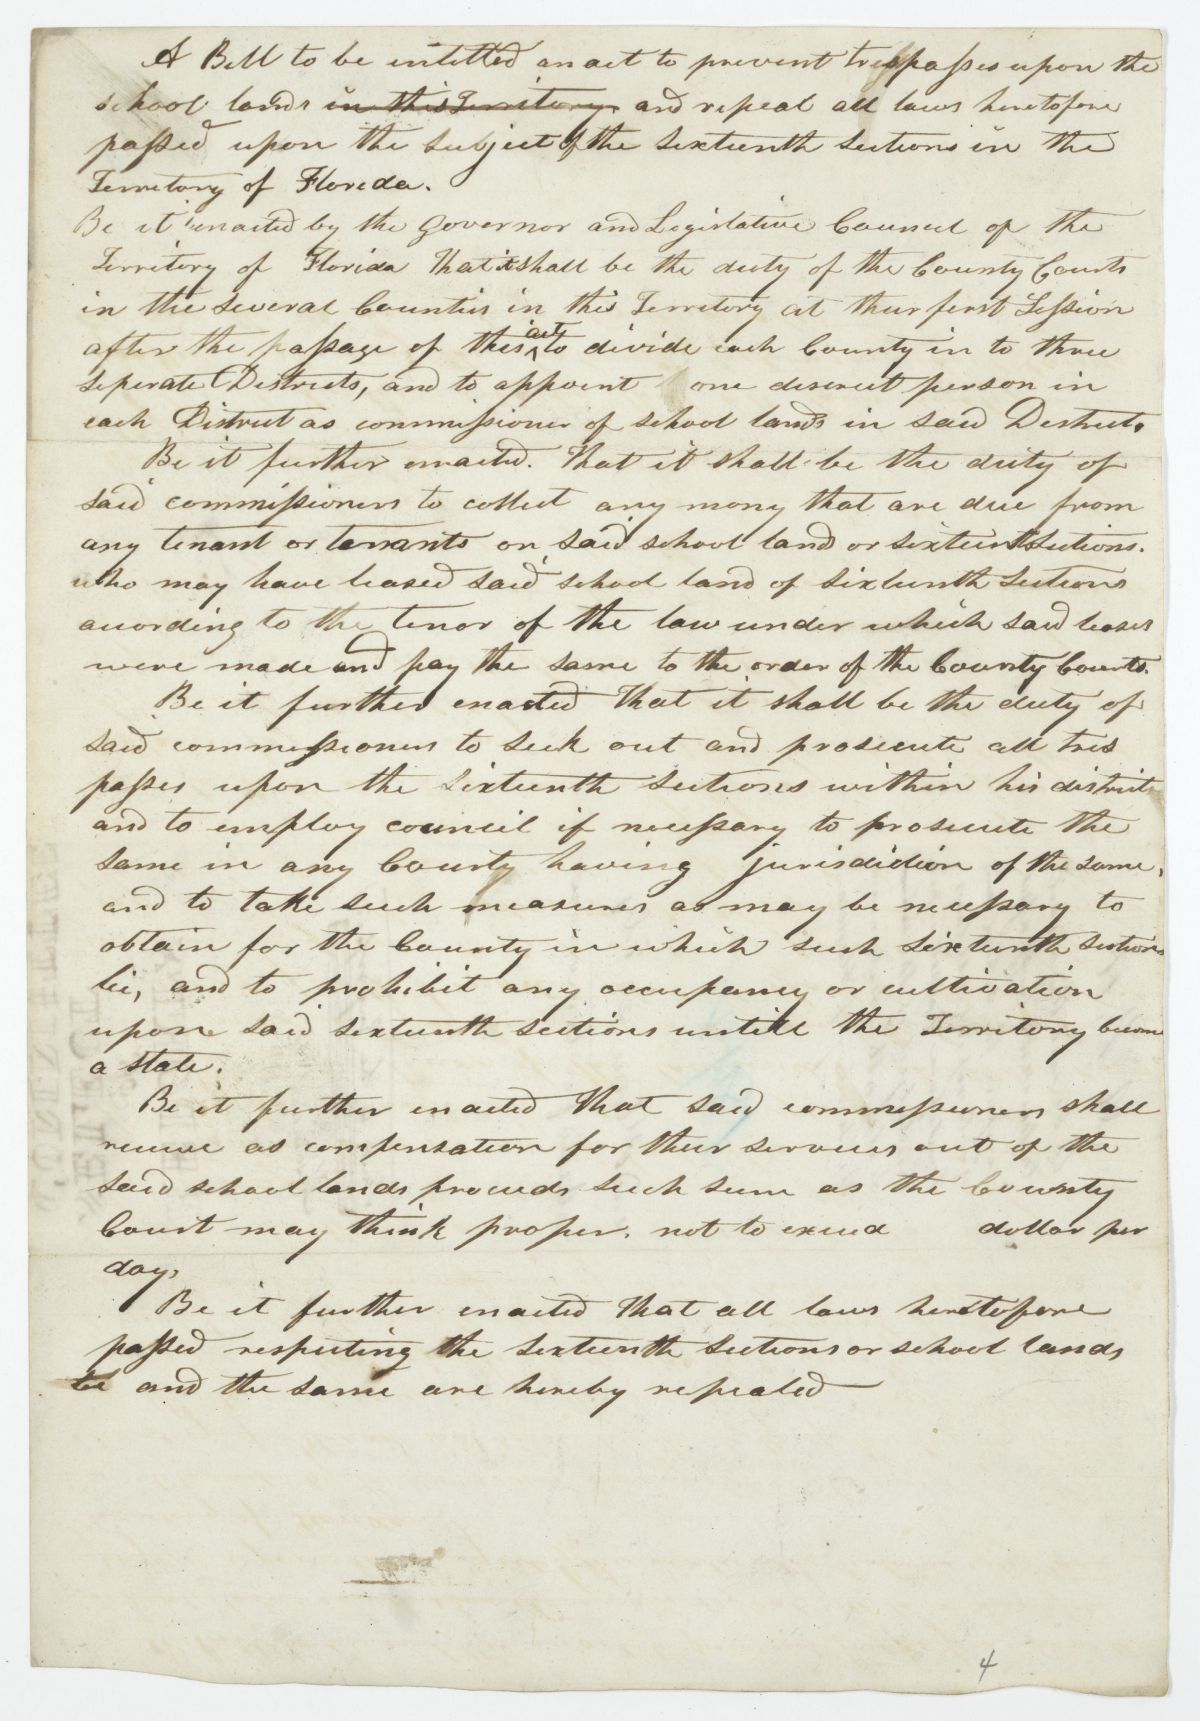 A Bill to be intitled an act to prevent trespasses upon the
school lands in this Territory and repeal all laws heretofore
passed upon the subject of the sixteenth sections in the
Territory of Florida.
Be it enacted by the Governor and Legislative Council of the
Territory of Florida That it shall be the duty of the County Courts
in the several Counties in this Territory at their first Session
after the passage of this act to divide each County in to three
seperate Districts, and to appoint one discreet person in
each District as commissioner of school lands in said District.
Be it further enacted. That it shall be the duty of
said commissioners to collect any mony that are due from
any tenant or tenants on said school land or sixteenth sections.
who may have leased said school land of sixteenth sections
acording to the tenor of the law under which said leases
were made and pay the same to the order of the County Courts.
Be it further enacted That it shall be the duty of
said commissioners to seek out and prosecute all tres
passes upon the sixteenth sections within his district
and to employ council if necessary to prosecute the
same in any County having jurisdidion of the same,
and to take such measures as may be necessary to
obtain for the County in which such sixteenth sections
lie, and to prohibit any occupancy or cultivation
upon said sixteenth sections untill the Territory become
a state.
Be it further enacted That said commissioners shall
receive as compensation for their services out of the
said school lands proceeds such sum as the County
Court may think proper. not to exceed dollar per
day.
Be it further enacted That all laws heretofore
passed respecting the sixteenth sections or school lands
be and the same are hereby repealed
4